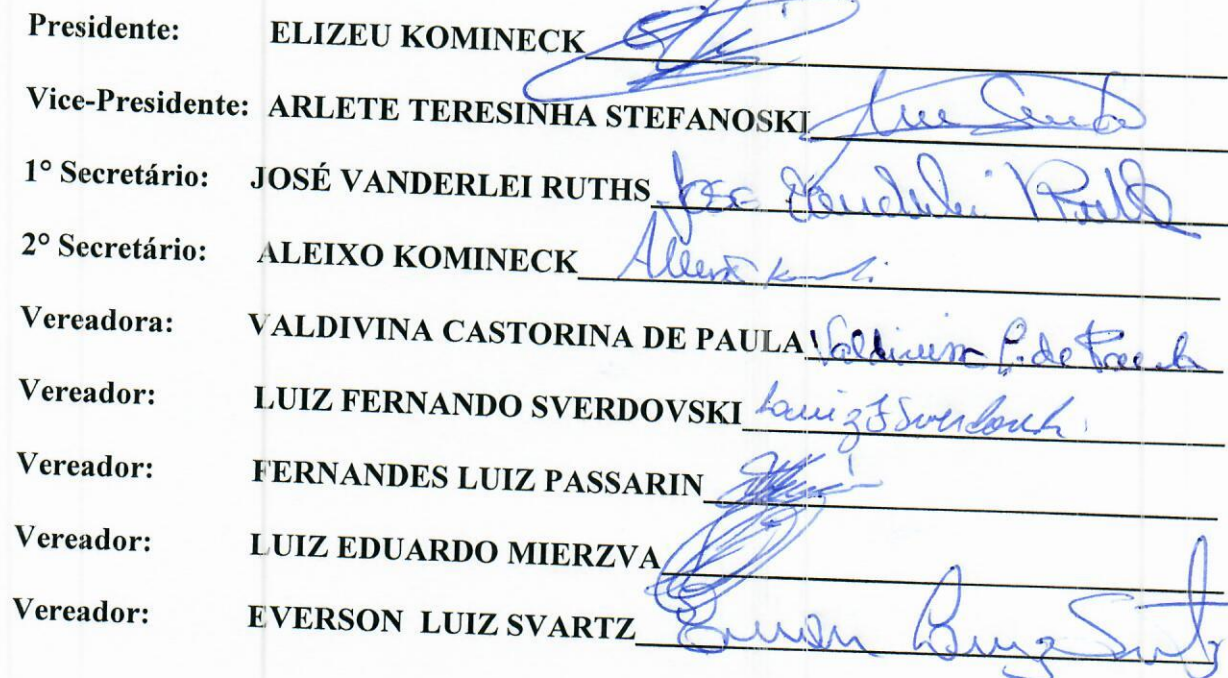 Presidente: ELIZEU KOMINECK
Vice-Presidente: ARLETE TERESINHA STEFANOSKI
1° Secretário: JOSÉ VANDERLEI RUTHS Jose Vanderlei Ruths
2° Secretário: ALEIXO KOMINECK
Vereadora: VALDIVINA CASTORINA DE PAULA Valdivina C. de Paula
Vereador: LUIZ FERNANDO SVERDOVSKI Luiz F Sverdovski
Vereador: FERNANDES LUIZ PASSARIN
Vereador: LUIZ EDUARDO MIERZVA
Vereador: EVERSON LUIZ SVARTZ Everson Luiz Svartz